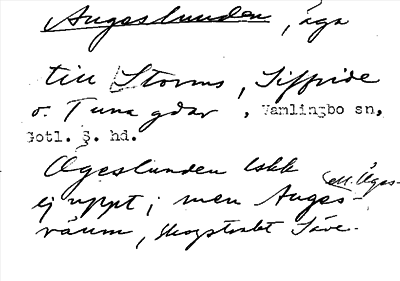 Augeslunden, äga
till Storms, Siffride
o. Tuna gdar, Vamlingbo sn,
Gotl. S. hd.
Ogeslunden lskk
ej uppt; men Auges- el. Öges-
räum, skogstrakt Säve.